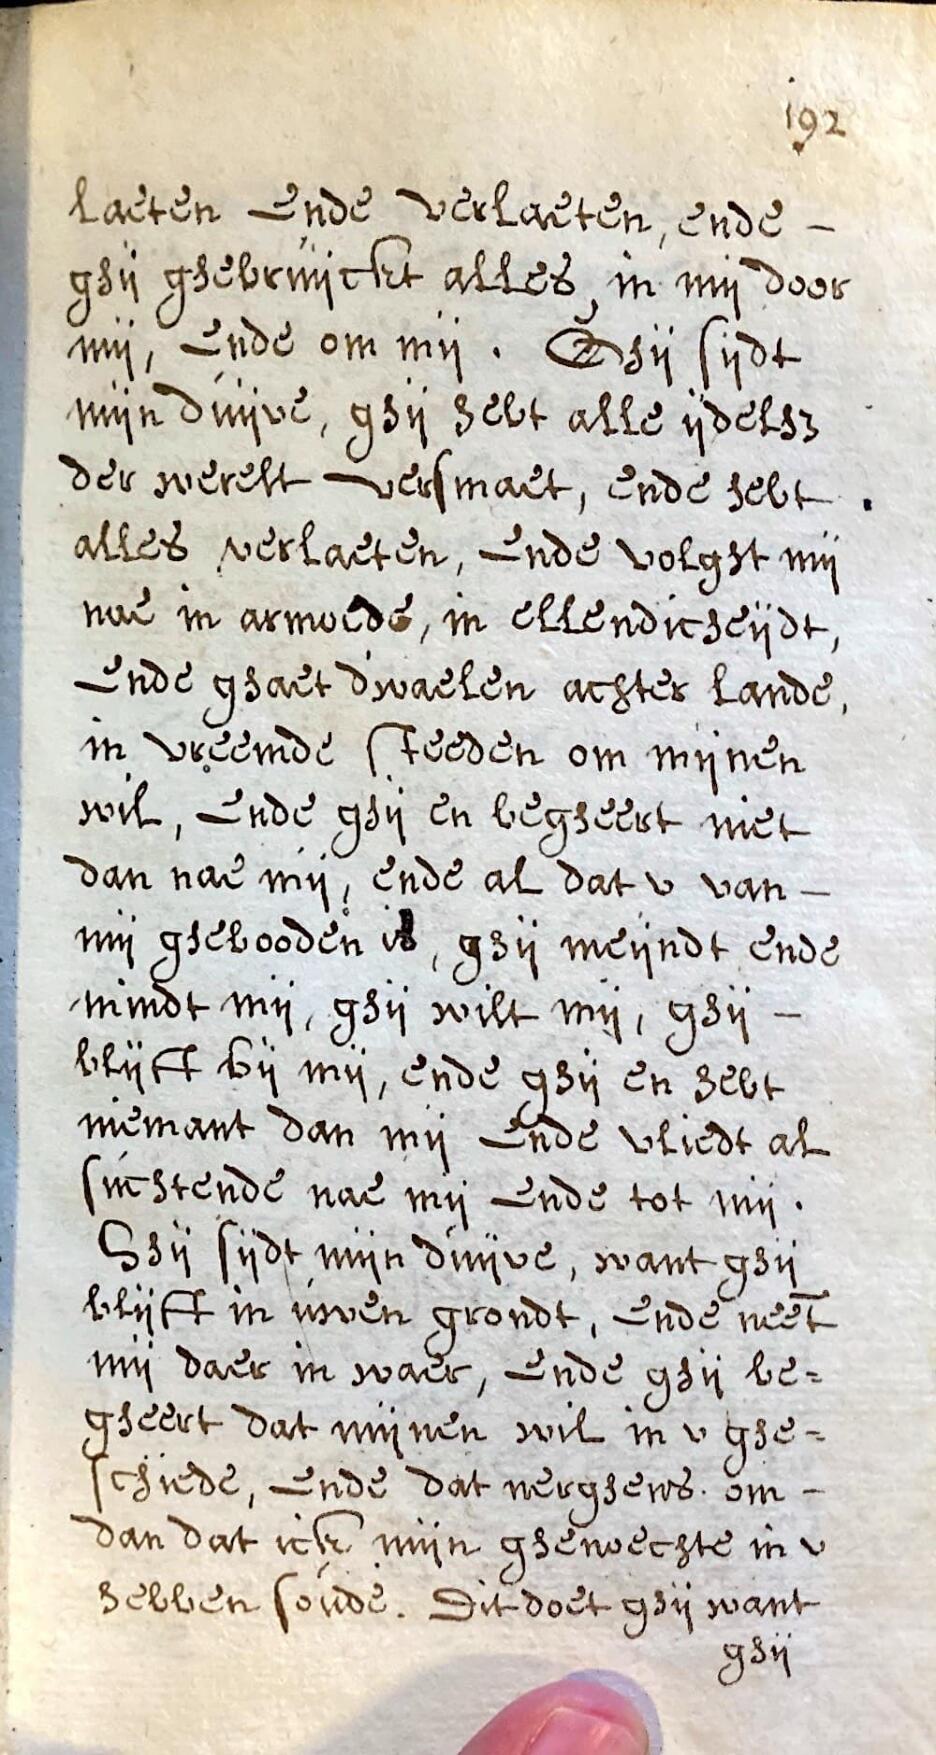 192
laeten Ende verlaeten, ende –
ghij ghebruijckt alles in mij door
mij, Ende om mij. Ghij sijdt
mijn duijve, ghij hebt alle ijdelh3
der werelt versmaet, ende hebt
alles verlaeten, Ende volght mij
nae in armoede, in ellendicheijdt,
Ende ghaet dwaelen achter lande,
in vreemde steeden om mijnen
wil, Ende ghij en begheert niet
dan nae mij, ende al dat v van –
mij ghebooden is, ghij meijndt ende
mindt mij, ghij wilt mij, ghij –
blijft bij mij, ende ghij en hebt
niemant dan mij Ende vliedt al
suchtende nae mij Ende tot mij.
Ghij sijdt mijn duijve, want ghij
blijft in uwen grondt, Ende neēt
mij daer in waer, Ende ghij be=
gheert dat mijnen wil in v ghe=
schiede, Ende dat nerghens om –
dan dat ick mijn ghenoechte in v
hebben soude. Dit doet ghij want
ghij